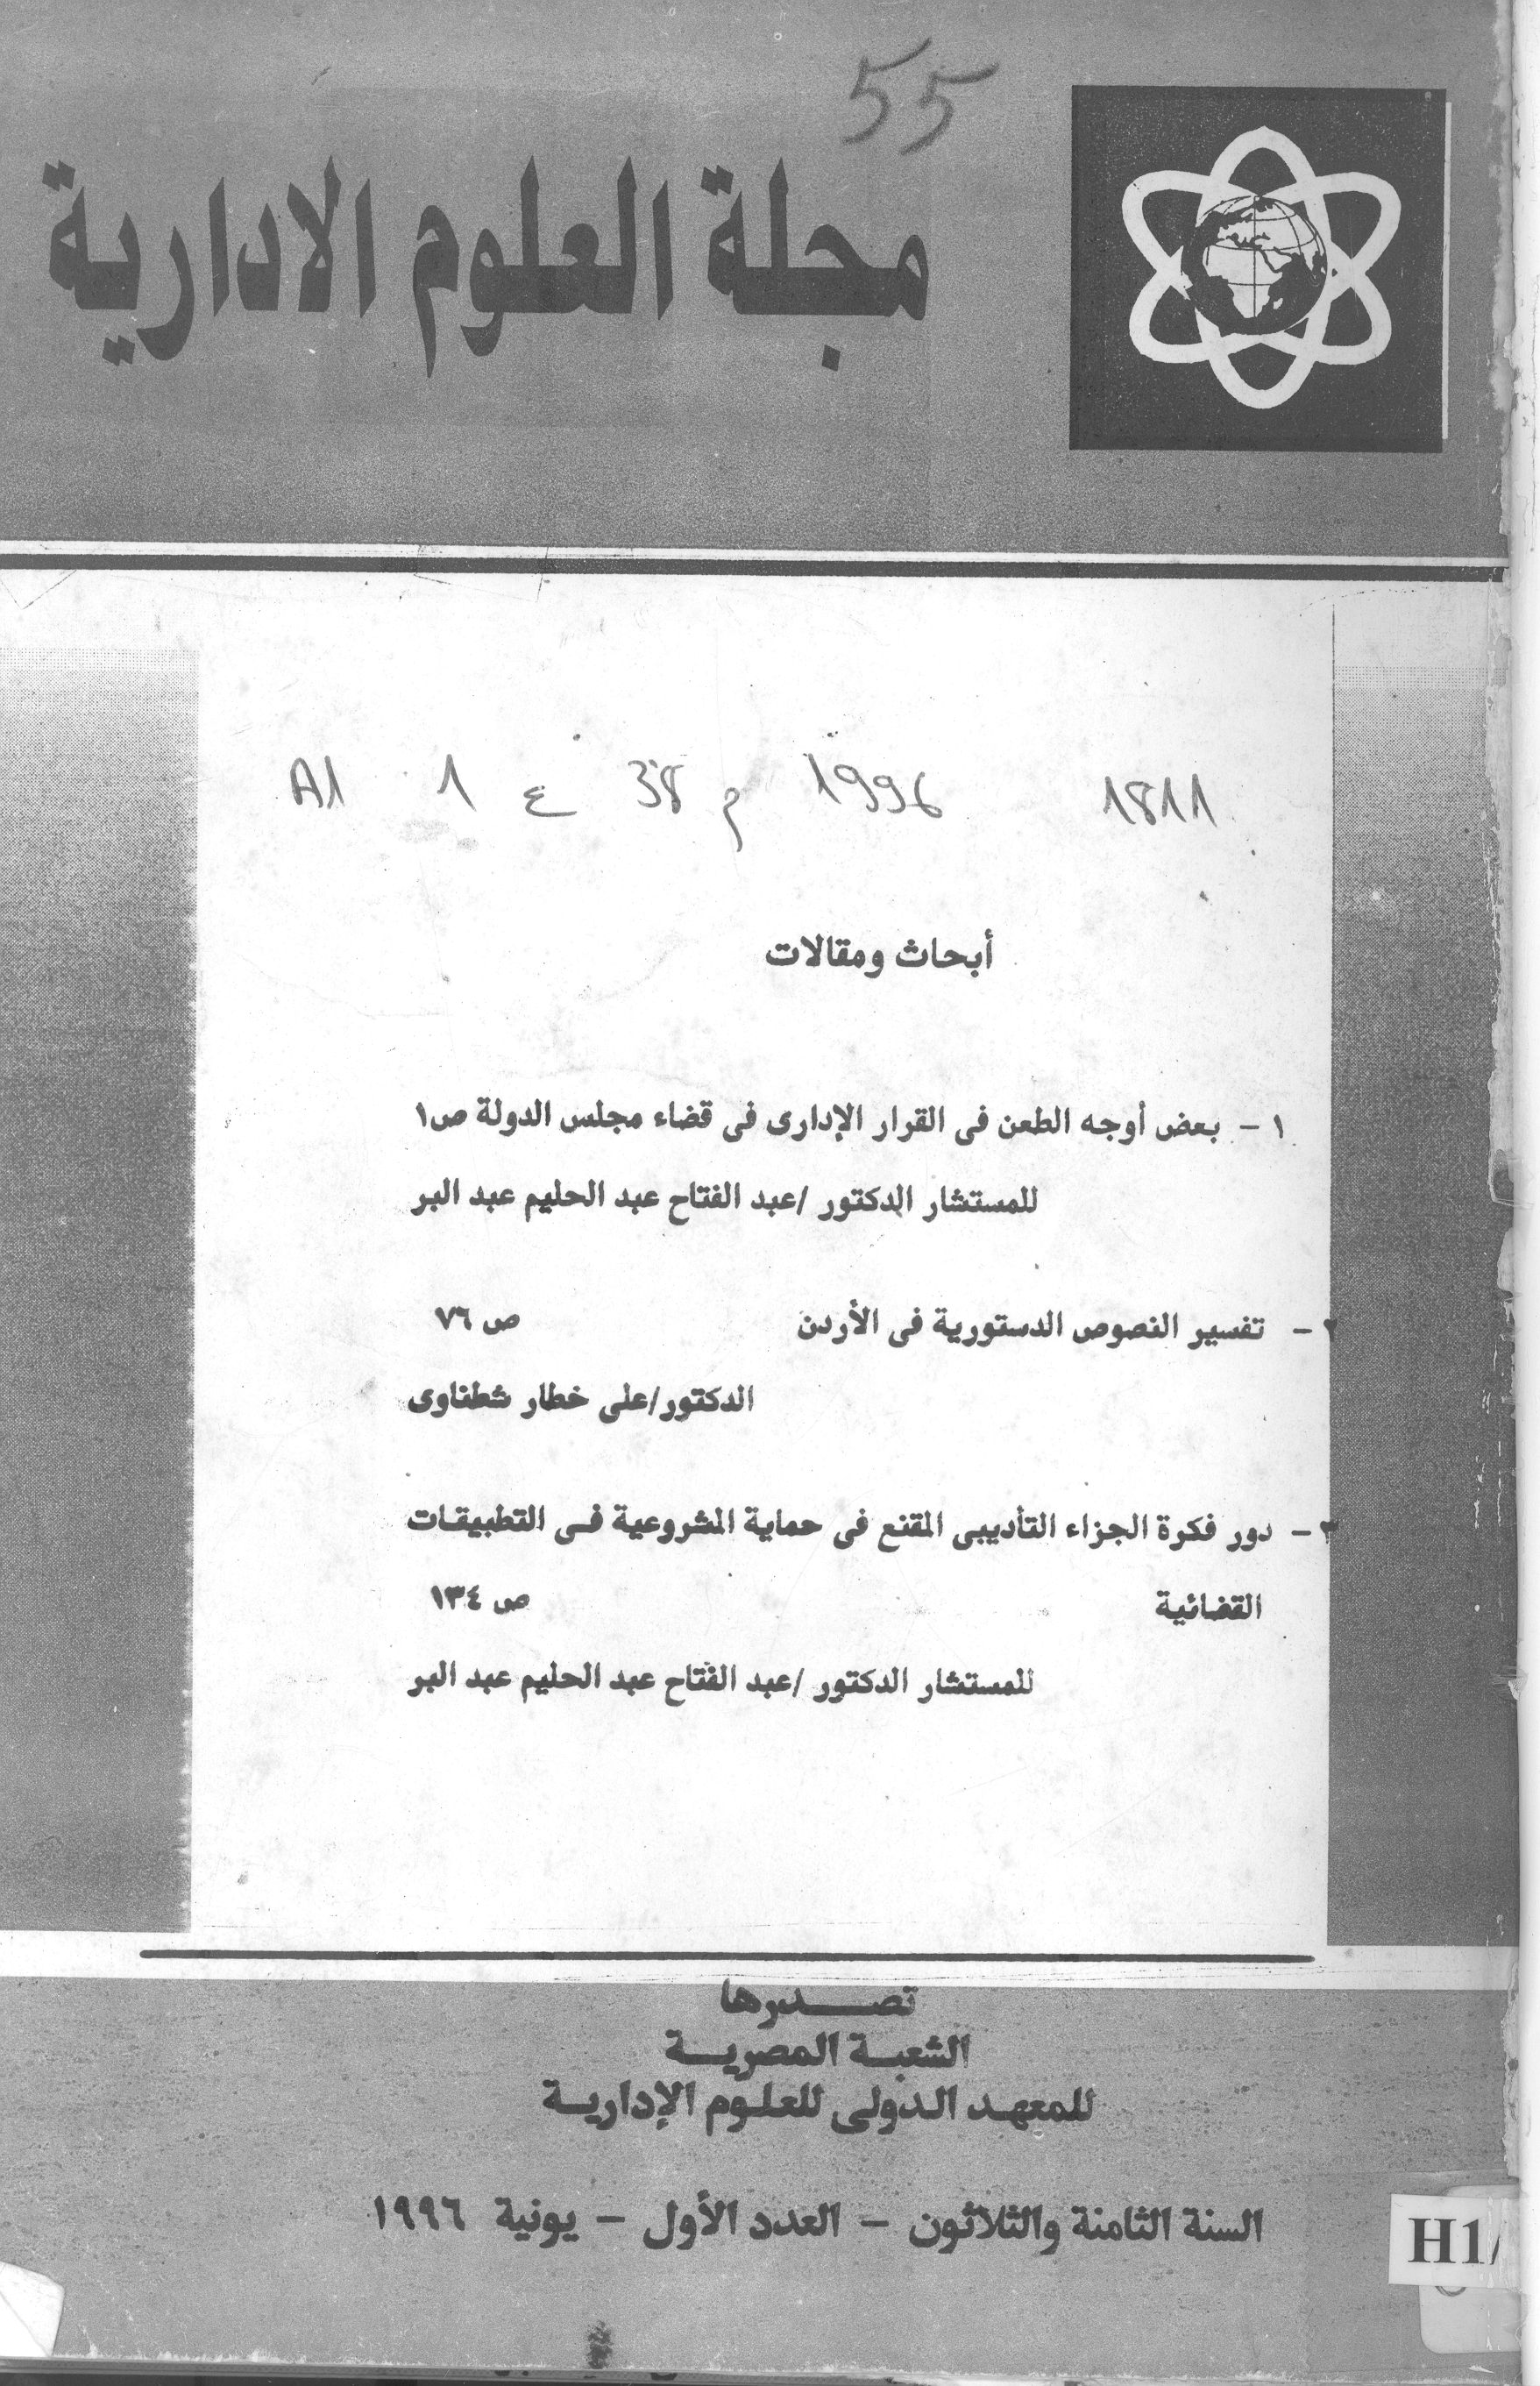 55
مجلة العلوم الادارية
1811 1996 م 38 ع 1 A1
أبحاث ومقالات
١ - بعض أوجه الطعن فى القرار الإدارى فى قضاء مجلس الدولة ص١
للمستشار الدكتور /عبد الفتاح عبد الحليم عبد البر
٢ - تفسير النصوص الدستورية فى الأردن ص ٧٦
الدكتور/على خطار شطناوى
٣ - دور فكرة الجزاء التأديبى المقنع فى حماية المشروعية فى التطبيقات
القضائية ص ١٣٤
للمستشار الدكتور /عبد الفتاح عبد الحليم عبد البر
تصدرها
الشعبة المصرية
للمعهد الدولى للعلوم الإدارية
السنة الثامنة والثلاثون - العدد الأول - يونية ١٩٩٦
H1/